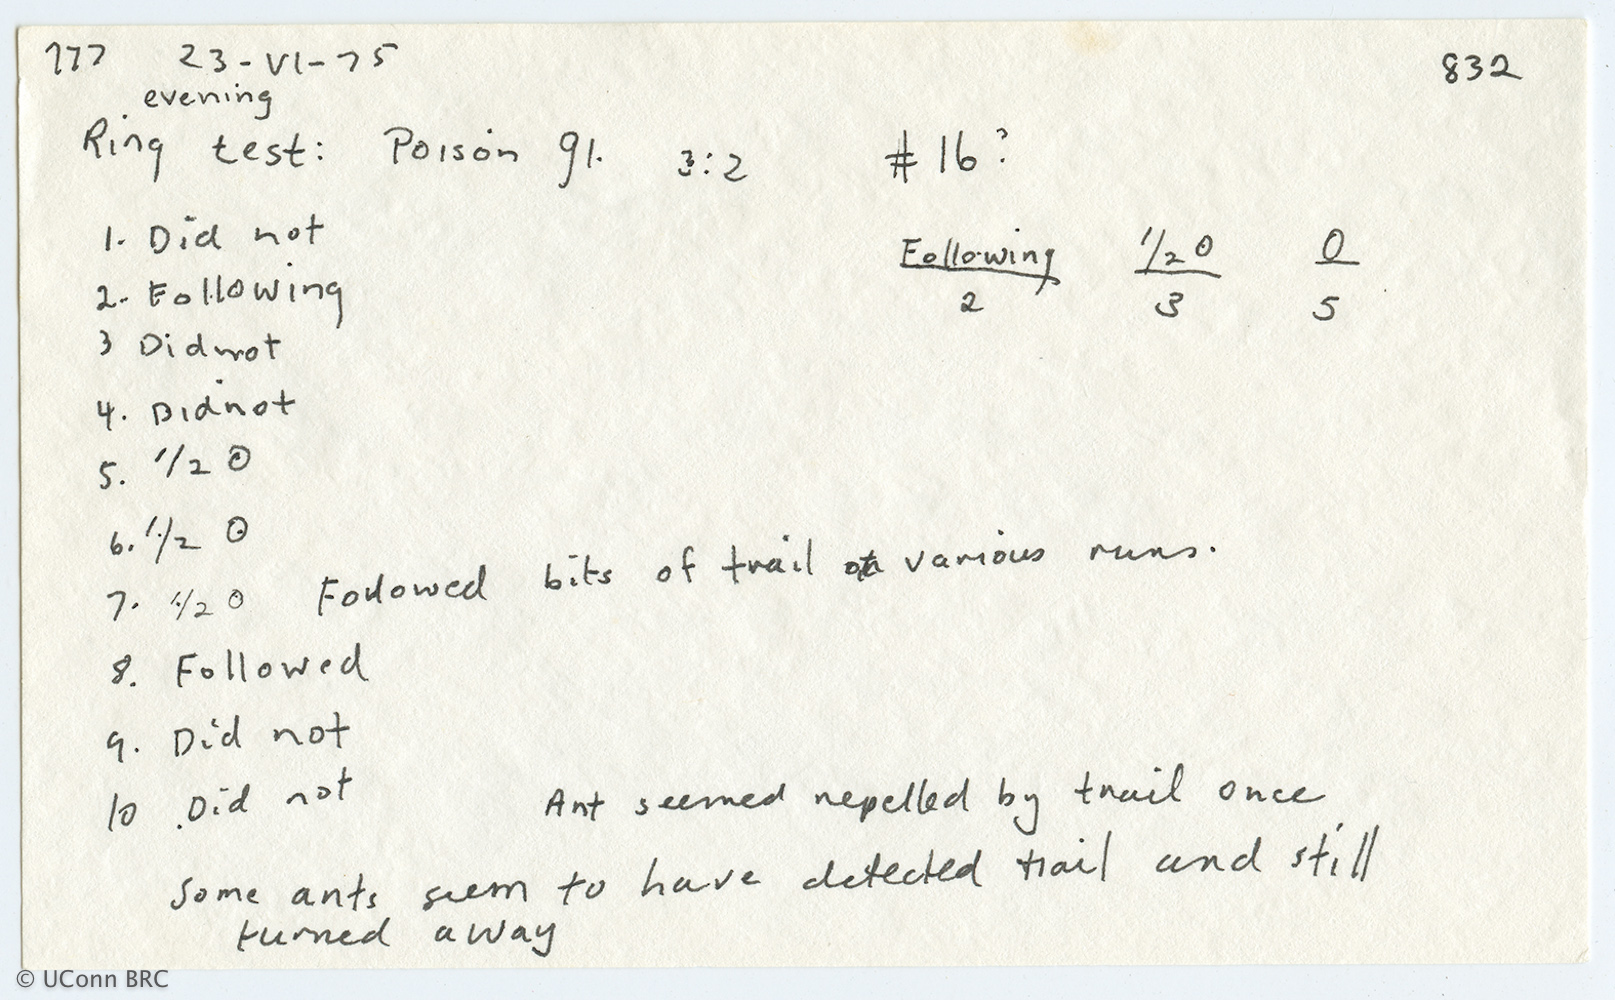 777 23-VI-75 832
evening
Ring test: Poison gl. 3:2 #16?
1. Did not
2. Following
3 Did not
4. Did not
5. 1/2 0
6. 1/2 0
7. 1/2 0 Followed bits of trail at various runs.
8. Followed
9. Did not
10. Did not Ant seemed repelled by trail once
Some ants seem to have detected trail and still
turned away
Following 1/2 0 0
2 3 5
© UConn BRC